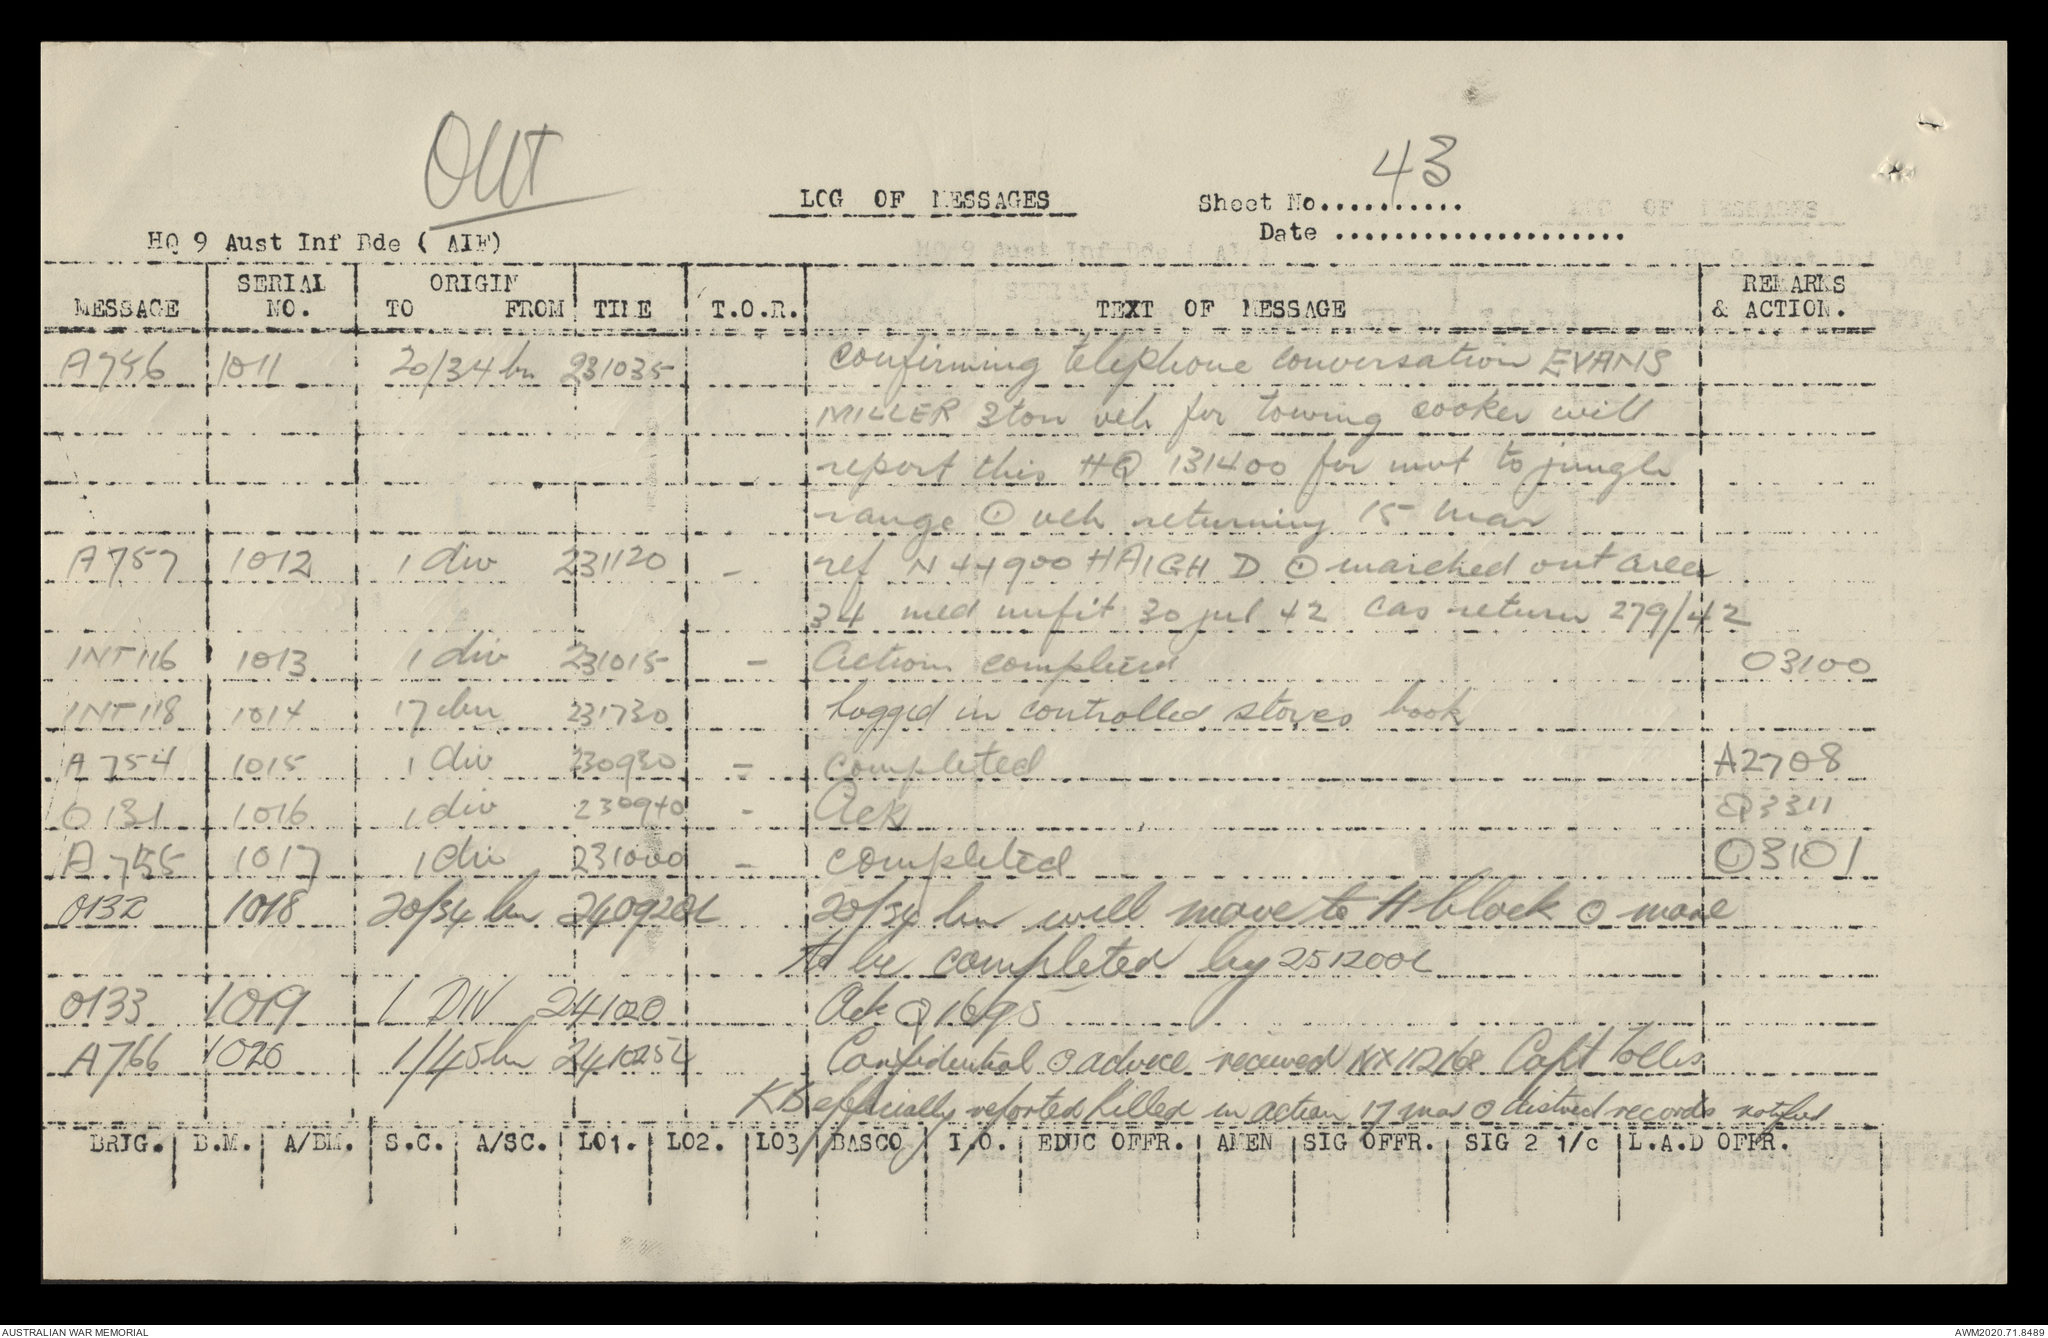 OUT
43
LOG OF MESSAGES
Sheet No...........
Date .....................
HQ 9 Aust Inf Bde ( AIF)
MESSAGE SERIAL NO. ORIGIN TO FROM TIME T.O.R. TEXT OF MESSAGE REMARKS & ACTION.
A756 1011 20/34 bn 231035 Confirming telephone conversation EVANS
MILLER 3 ton veh for towing cooker will
report this HQ 131400 for mvt to jungle
range ⊙ veh returning 15 Mar
A757 1012 1 div 231120 - ref N44900 HAIGH D ⊙ marched out area
34 med unfit 30 jul 42 Cas return 279/42
INT116 1013 1 div 231015 - Action completed 03100
INT118 1014 17 bn 231730 Logged in controlled stores book
A754 1015 1 div 230930 = completed A2708
O131 1016 1 div 230940 - Ack Q3311
A755 1017 1 div 231000 = completed O3101
O132 1018 20/34 bn 240920L 20/34 bn will move to A block ⊙ move
to be completed by 251200L
O133 1019 1 DIV 241020 Ack Q1695
A766 1020 1/45 bn 241025L Confidential ⊙ advice received NX112168 Capt
KB officially reported killed in action 17 mar ⊙ records notified
BRIG. B.M. A/BM. S.C. A/SC. LO1. LO2. LO3 BASCO I.O. EDUC OFFR. AMEN SIG OFFR. SIG 2 1/c L.A.D OFFR.
AUSTRALIAN WAR MEMORIAL
AWM2020.71.8489